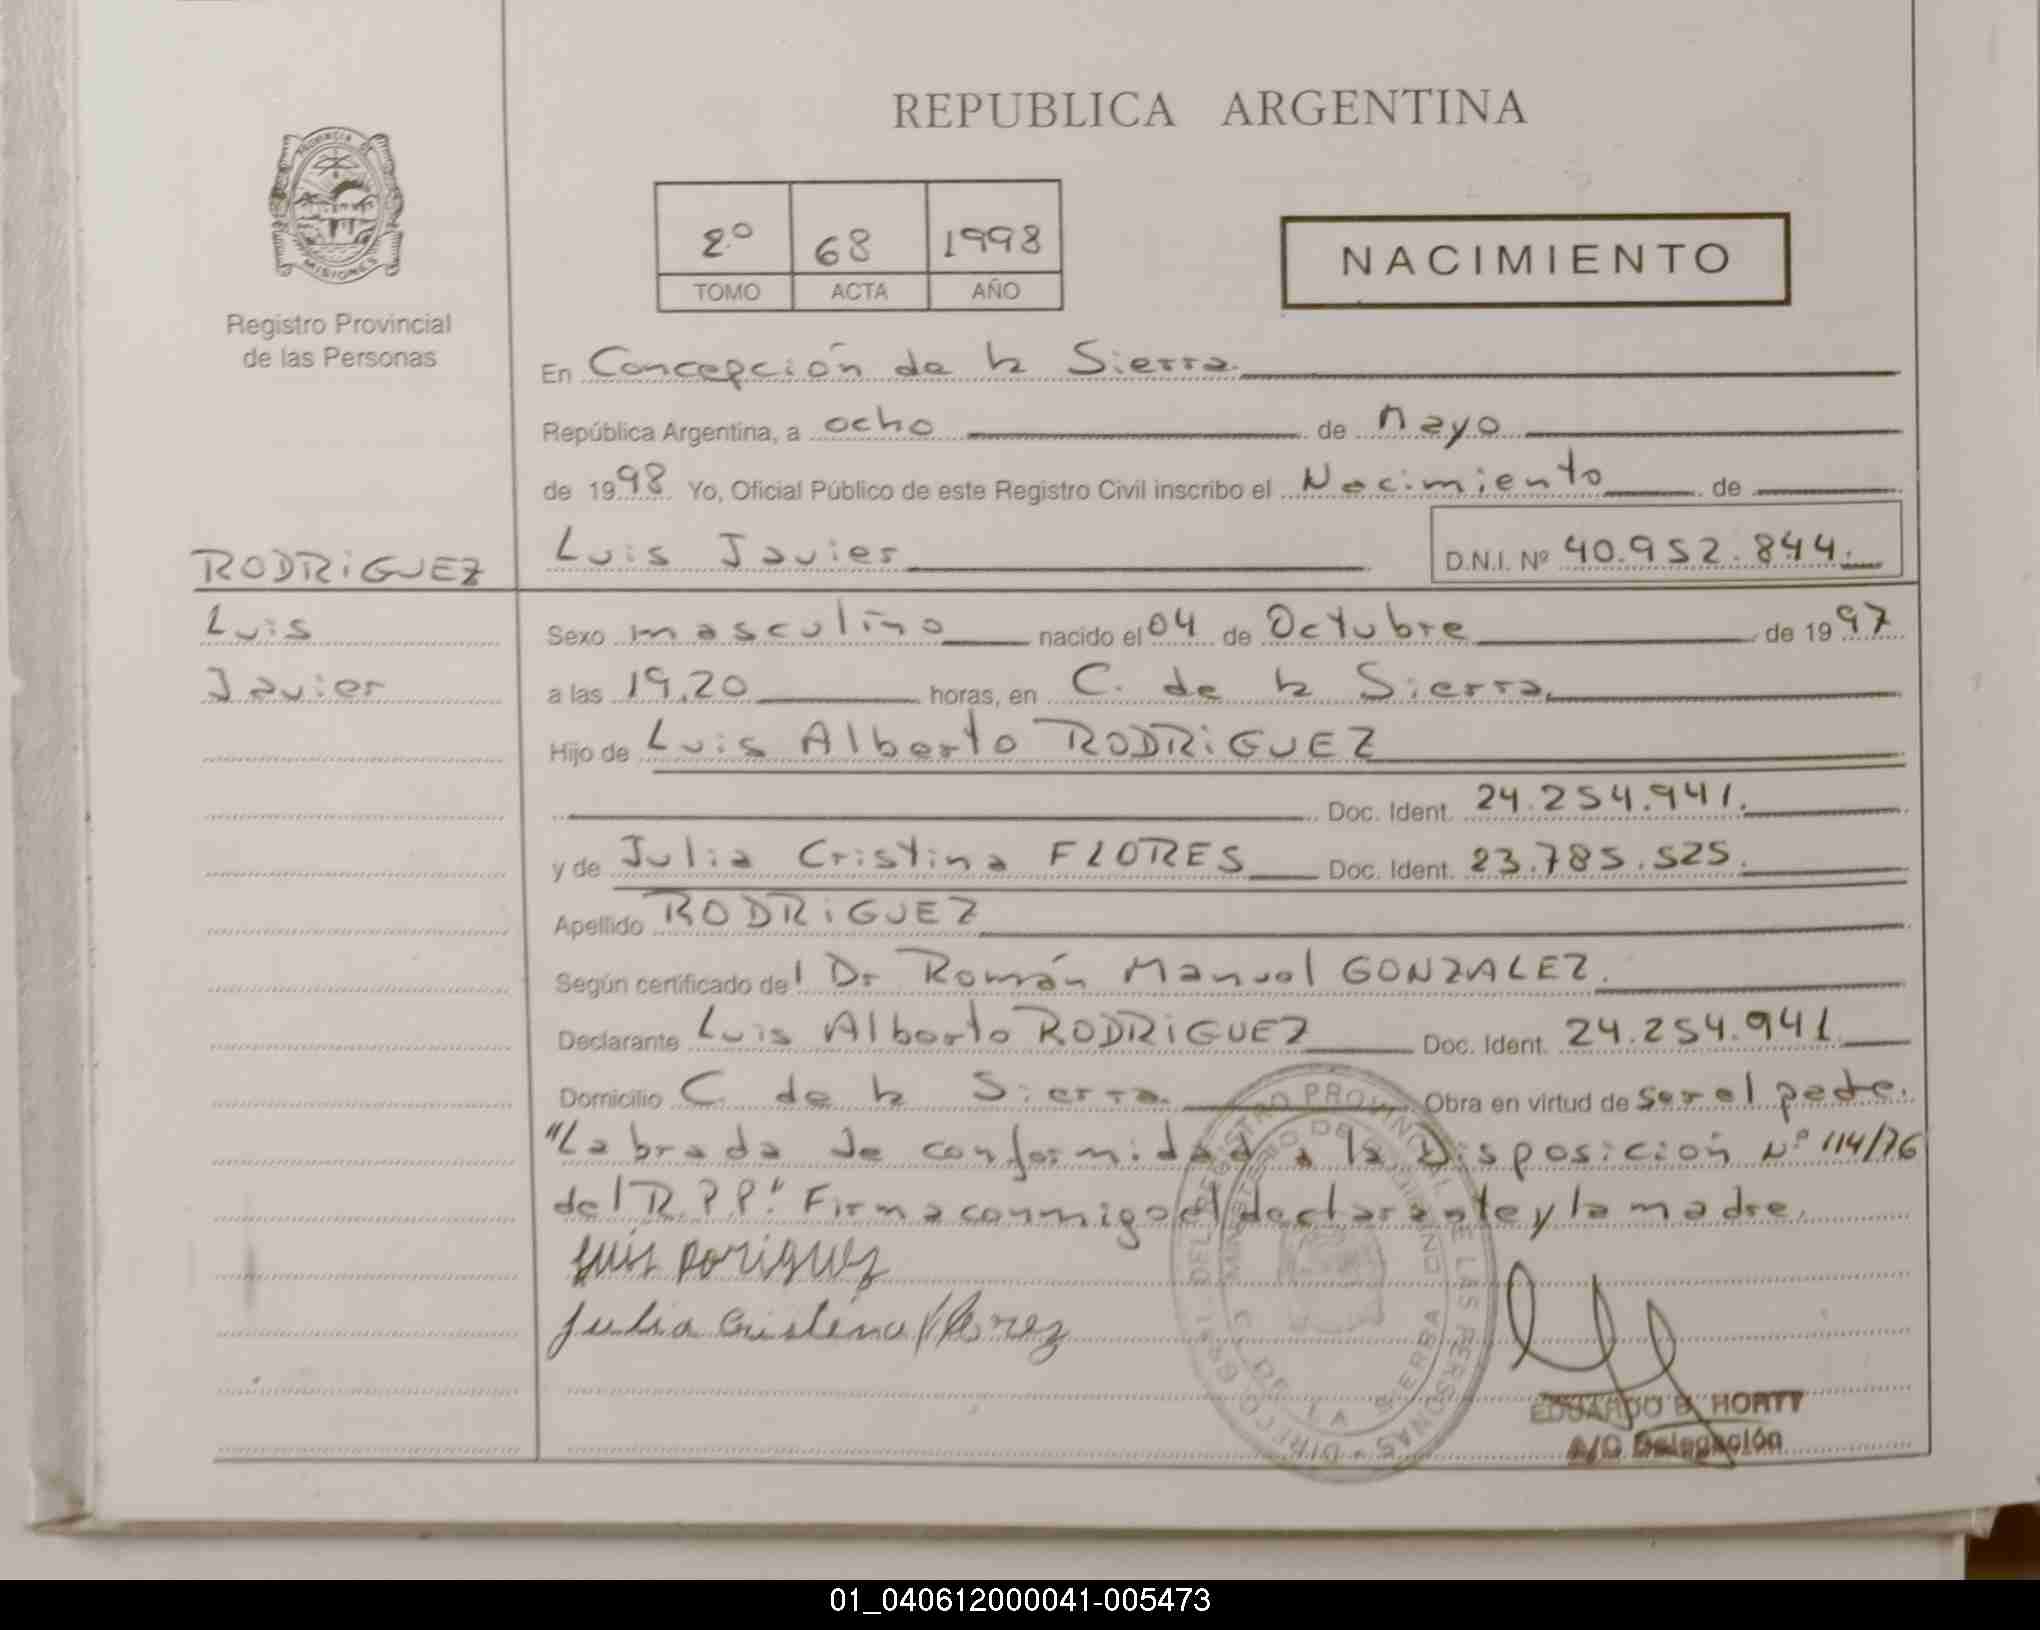 REPUBLICA ARGENTINA
PROVINCIA DE
MISIONES
Registro Provincial
de las Personas
2º 68 1998
TOMO ACTA AÑO
NACIMIENTO
En Concepción de la Sierra.
República Argentina, a ocho de Mayo
de 1998 Yo, Oficial Público de este Registro Civil inscribo el Nacimiento de
RODRiGUEZ Luis Javier D.N.I. Nº 40.952.844.
Luis
Javier
Sexo masculino nacido el 04 de Octubre de 1997
a las 19,20 horas, en C. de la Sierra,
Hijo de Luis Alberto RODRiGUEZ
Doc. Ident. 24.254.941.
y de Julia Cristina FLORES Doc. Ident. 23.785.525.
Apellido RODRiGUEZ
Según certificado del Dr Román Manuel GONZALEZ.
Declarante Luis Alberto RODRiGUEZ Doc. Ident. 24.254.941
Domicilio C. de la Sierra. Obra en virtud de ser el padre.
"Labrada de conformidad a la Disposición Nº 114/76
del R.P.P." Firma conmigo el declarante y la madre.
Luis Doriguez
Julia Cristina Florez
DIRECCO GRAL DEL REGISTRO PROVINCIAL DE LAS PERSONAS
MINISTERIO DE GOBIERNO
C. DE LA SIERRA
EDUARDO B. HORTT
A/C Delegación
01_040612000041-005473